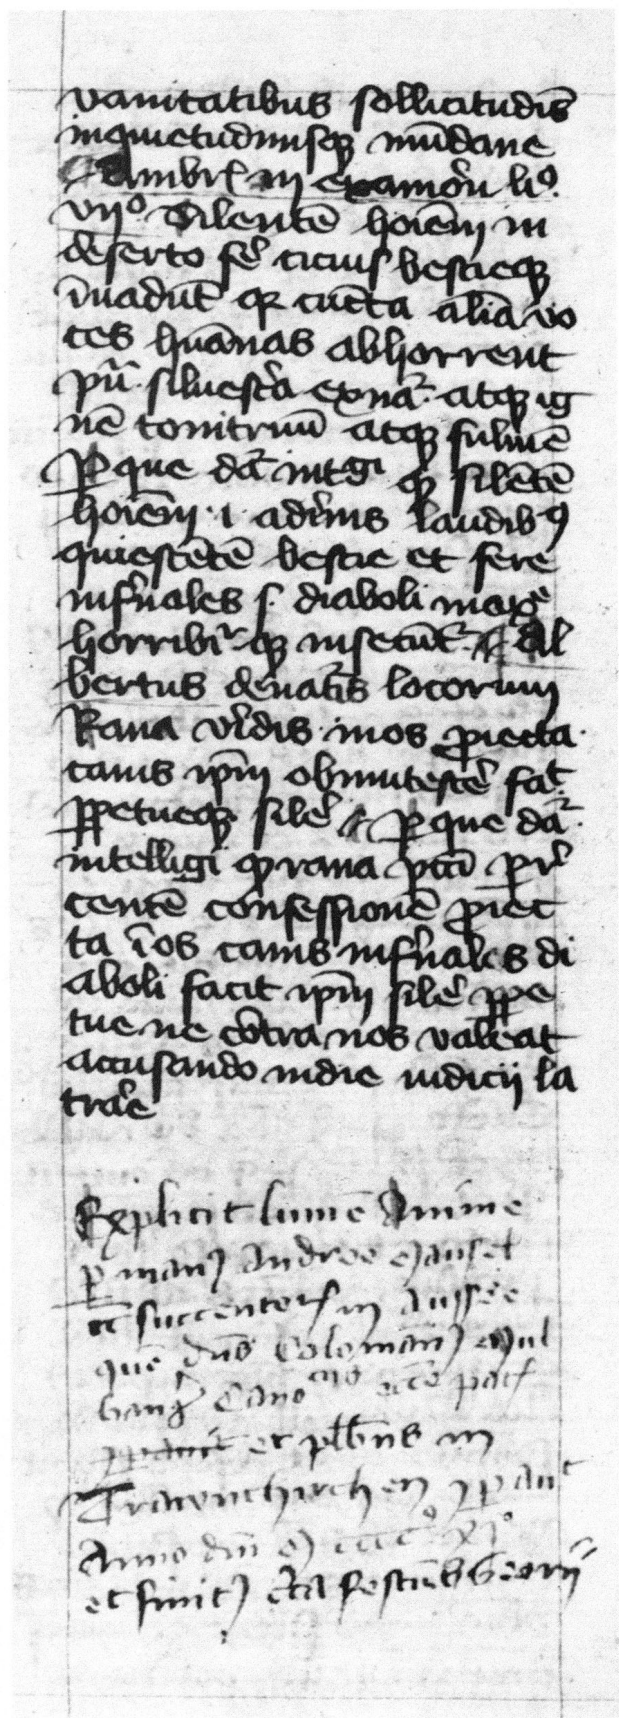 vanitatibus sollicitudīs
inquietudinisqꝫ mūdane
Ambrꝰ in exameron liº.
viiº Silentē hoīem in
deserto fe citius bestieqꝫ
īuadūt qr cūcta alia vo
ces huānas abhorrent
silvestria atqꝫ ig
nē tonitruū atqꝫ fulmē
Per que dat intgi qꝫ silētē
hoīem .i. a diuīs laudibꝰ
quiescētē bestie et fere
infernales s. diaboli
horribiꝉr qꝫ insecūt. Al
bertus de natīs locorum
Rana viridis in os proiecta
canis ipm obmutescē fac
perpetueqꝫ silē per que dar
intelligi qꝫ rana pcti per
centē confessionē proiec
ta ī os canis infernales di
aboli facit ipm silē perpe
tue ne cōtra nos valeat
accusando in die iudicij la
trare
Explicit lumē Anime
per manꝰ Andree
succentors in Aussee
quē dns Colomanꝰ
Cano
et plbns in
Trawnchirchen
Anno dni M cccc º xiº
et finitꝰ cīca festum Georij